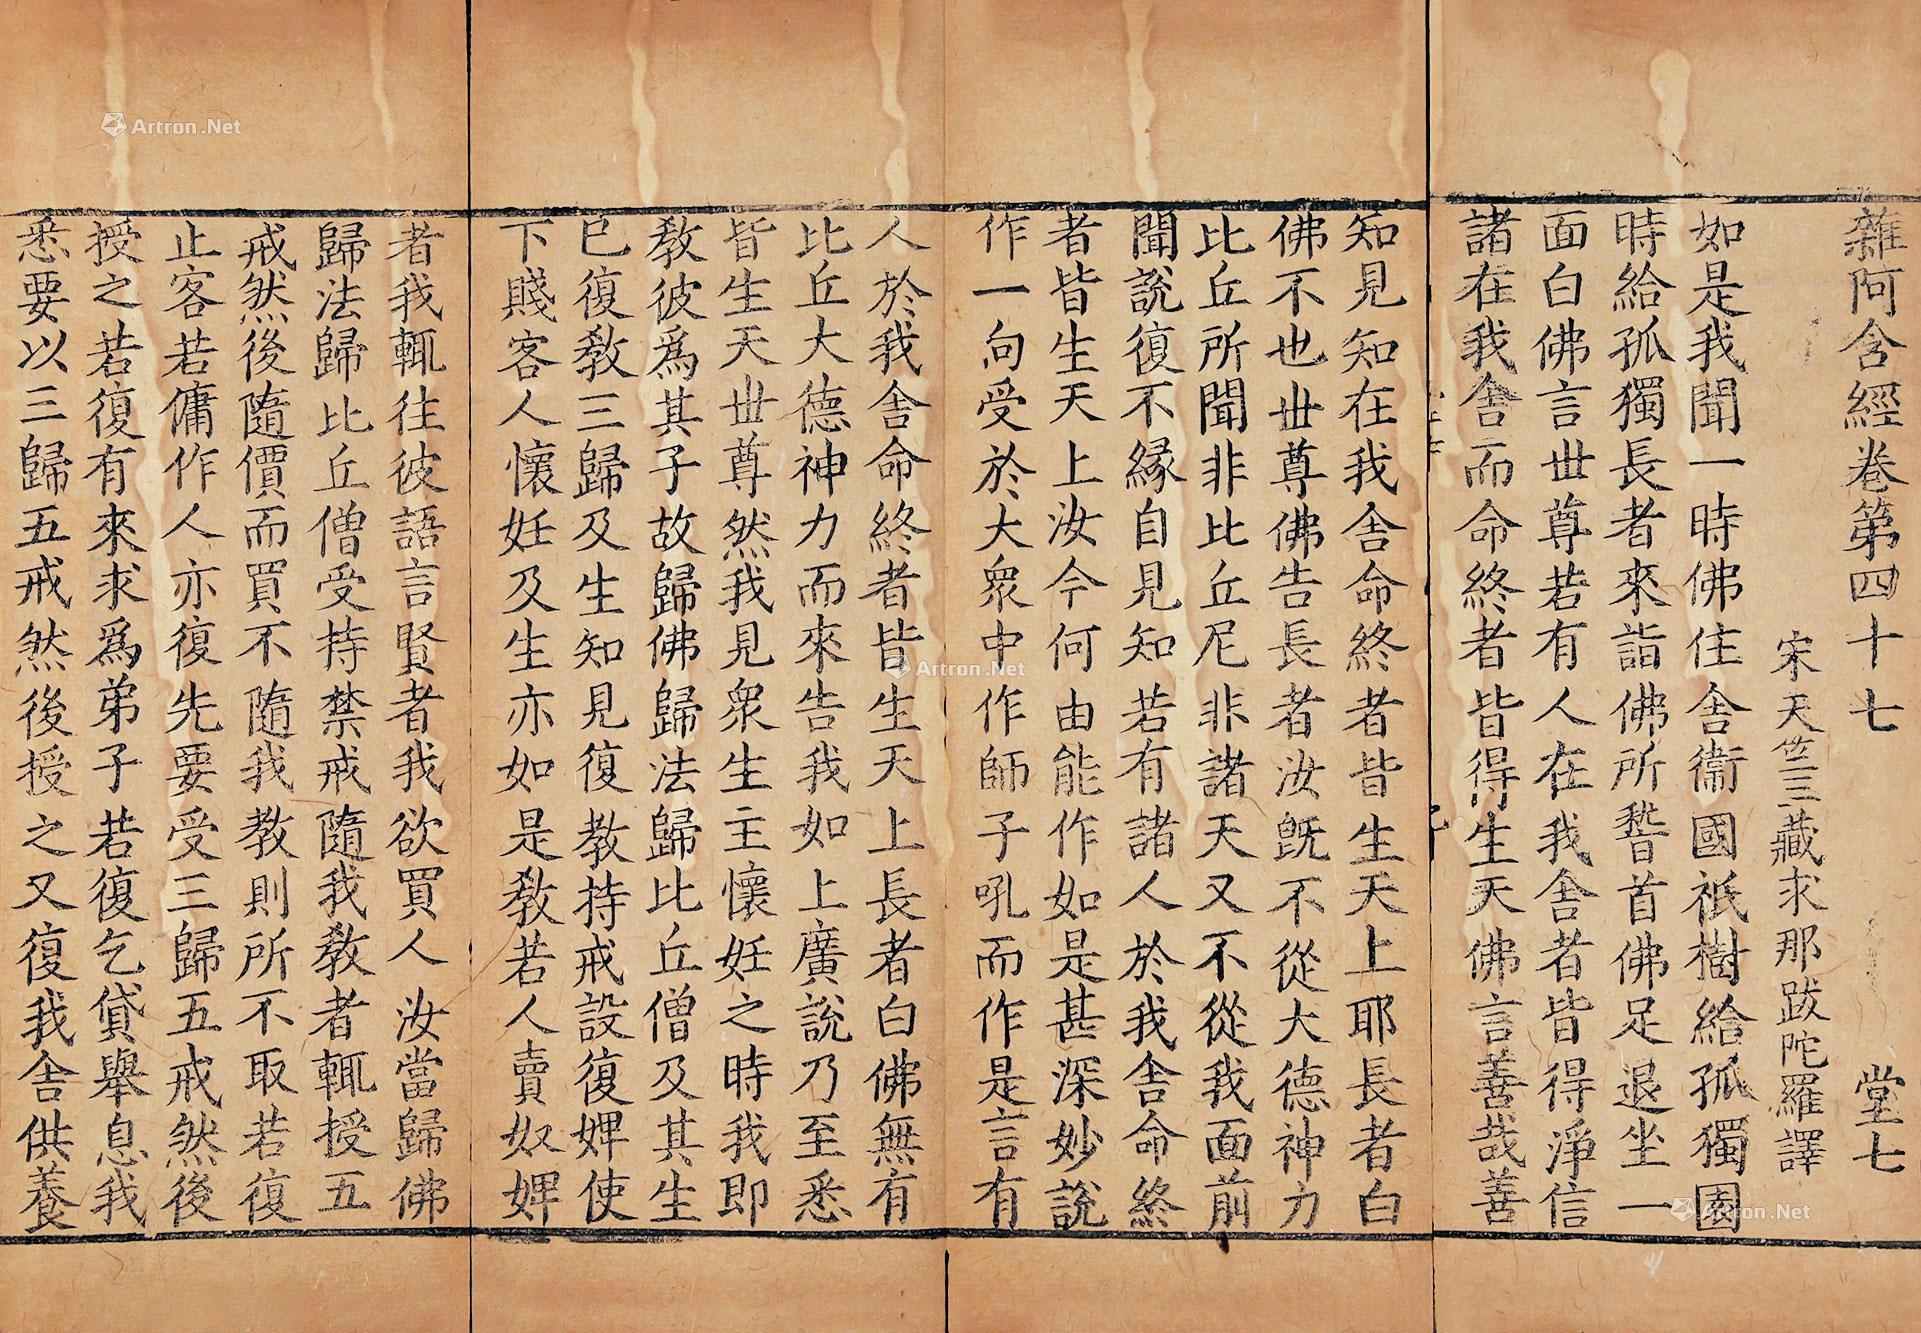 雜阿含經卷第四十七 堂七
宋天竺三藏求那跋陀羅譯
如是我聞一時佛住舍衞國祇樹給孤獨園
時給孤獨長者來詣佛所稽首佛足退坐一
面白佛言世尊若有人在我舍者皆得淨信
諸在我舍而命終者皆得生天佛言善哉善
知見知在我舍命終者皆生天上耶長者白
佛不也世尊佛告長者汝旣不從大德神力
比丘所聞非比丘尼非諸天又不從我面前
聞說復不緣自見知若有諸人於我舍命終
者皆生天上汝今何由能作如是甚深妙說
作一向受於大眾中作師子吼而作是言有
人於我舍命終者皆生天上長者白佛無有
比丘大德神力而來告我如上廣說乃至悉
皆生天世尊然我見眾生主懷妊之時我即
教彼爲其子故歸佛歸法歸比丘僧及其生
已復教三歸及生知見復教持戒設復婢使
下賤客人懷妊及生亦如是教若人賣奴婢
者我輒往彼語言賢者我欲買人汝當歸佛
歸法歸比丘僧受持禁戒隨我教者輒授五
戒然後隨價而買不隨我教則所不取若復
止客若傭作人亦復先要受三歸五戒然後
授之若復有來求爲弟子若復乞貸舉息我
悉要以三歸五戒然後授之又復我舍供養
Artron.Net
Artron.Net
Artron.Net